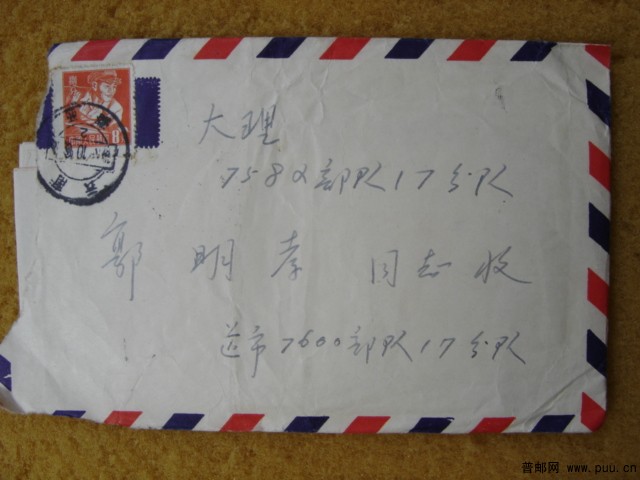 大理
7582部队17分队
郭明孝 同志收
迤市7600部队17分队
8
云南
普邮网 www.puu.cn